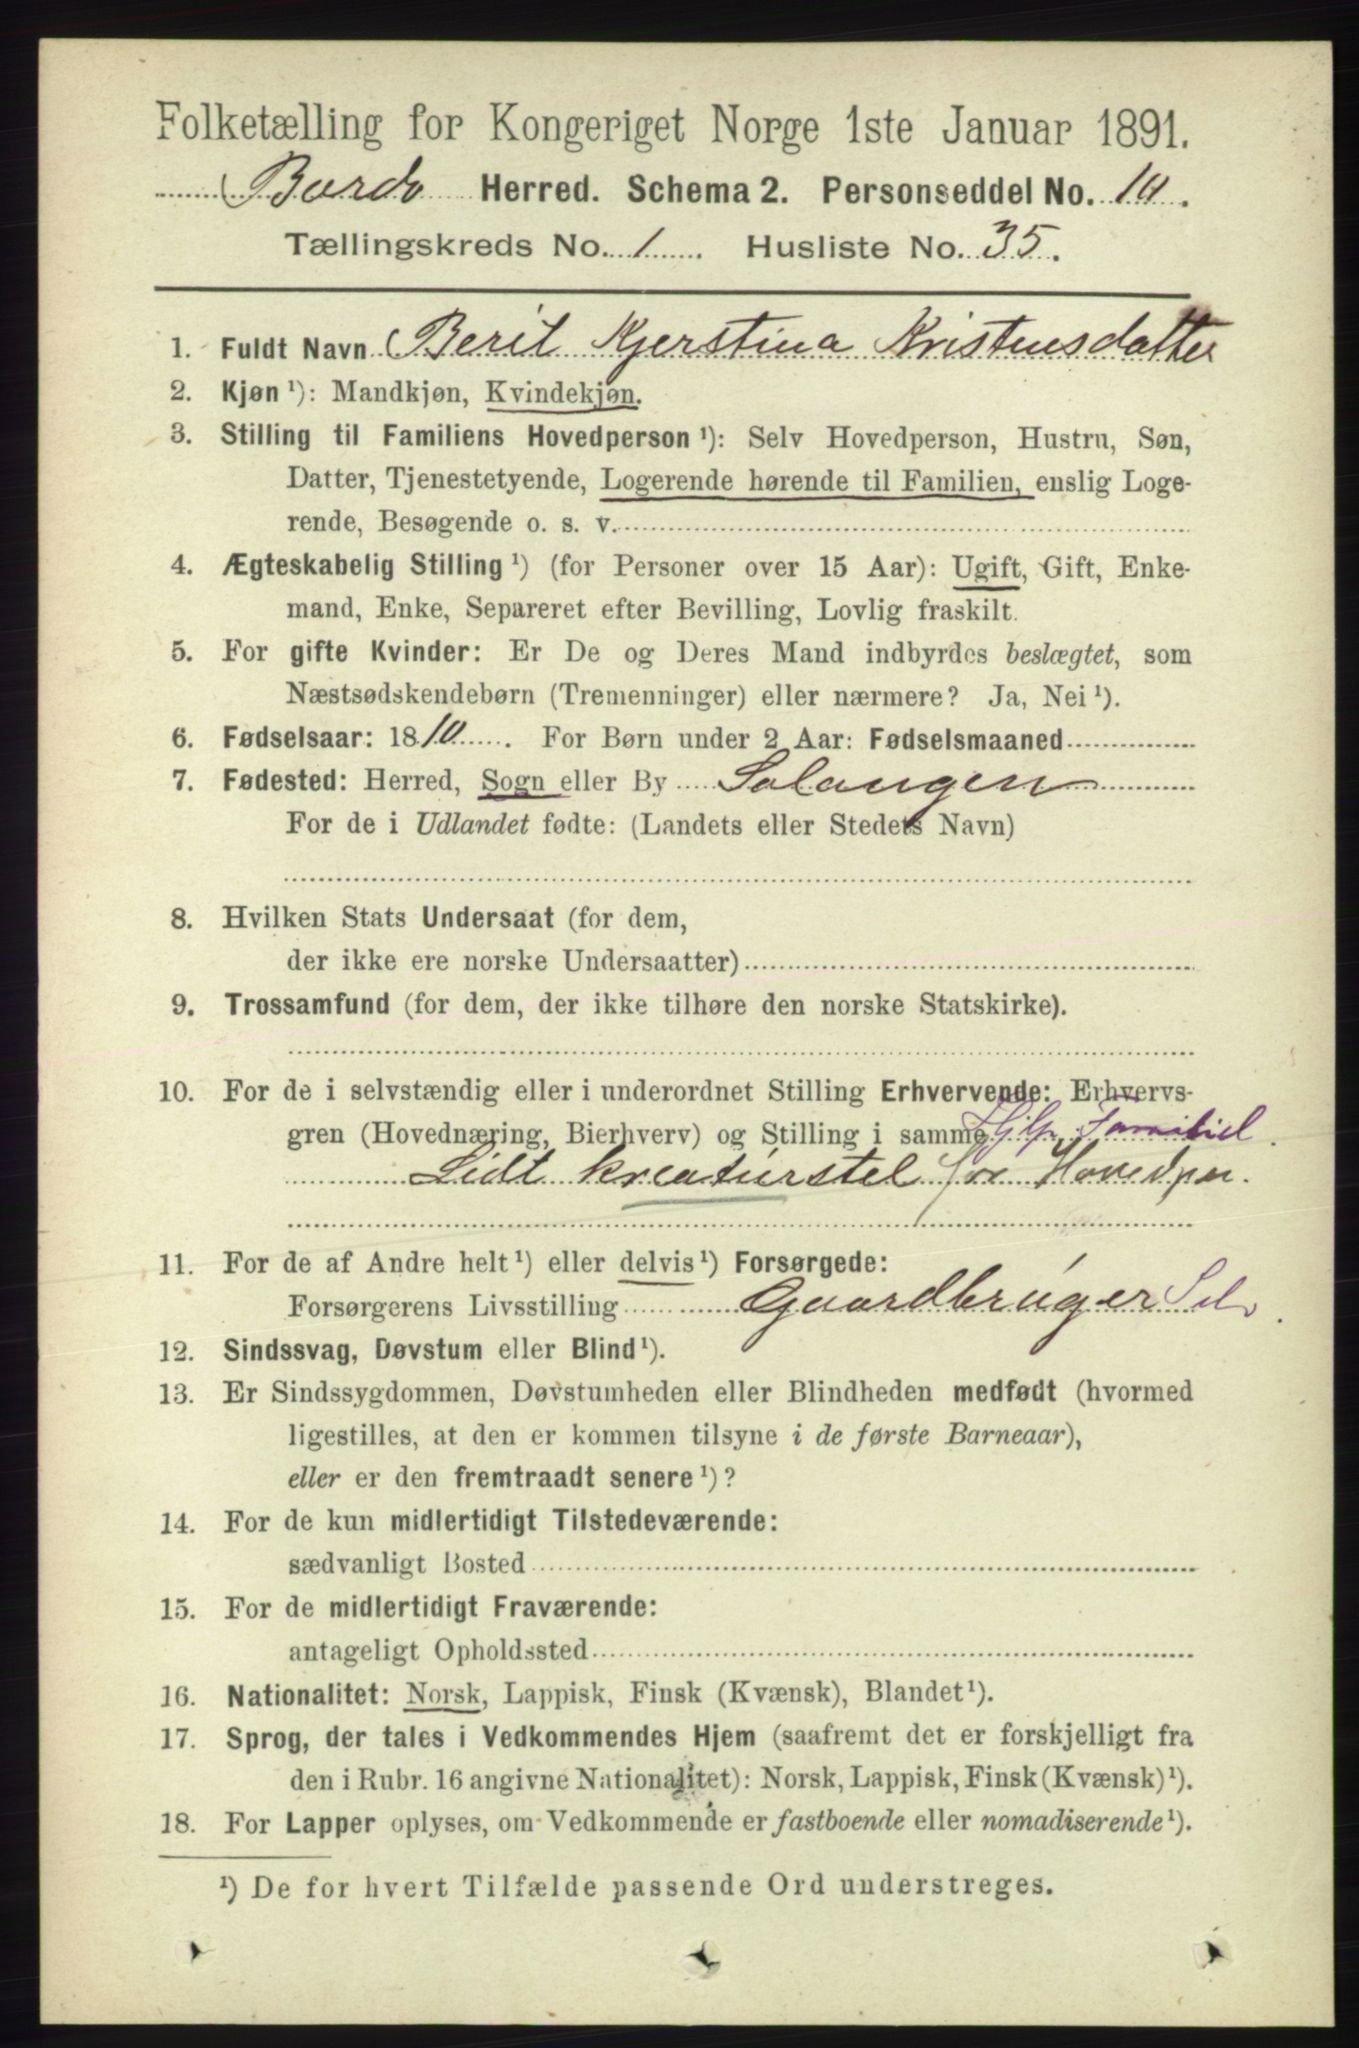 Folketælling for Kongeriget Norge 1ste Januar 1891.
Bardo Herred. Schema 2. Personseddel No. 10.
Tællingskreds No. 1 Husliste No. 35.
1. Fuldt Navn Berit Kjerstina Kristensdatter
2. Kjøn ¹): Mandkjøn, Kvindekjøn.
3. Stilling til Familiens Hovedperson ¹): Selv Hovedperson, Hustru, Søn,
Datter, Tjenestetyende, Logerende hørende til Familien, enslig Loge-
rende, Besøgende o. s. v.
4. Ægteskabelig Stilling ¹) (for Personer over 15 Aar): Ugift, Gift, Enke-
mand, Enke, Separeret efter Bevilling, Lovlig fraskilt.
5. For gifte Kvinder: Er De og Deres Mand indbyrdes beslægtet, som
Næstsødskendebørn (Tremenninger) eller nærmere? Ja, Nei ¹).
6. Fødselsaar: 1810. For Børn under 2 Aar: Fødselsmaaned
7. Fødested: Herred, Sogn eller By Salangen
For de i Udlandet fødte: (Landets eller Stedets Navn)
8. Hvilken Stats Undersaat (for dem,
der ikke ere norske Undersaatter)
9. Trossamfund (for dem, der ikke tilhøre den norske Statskirke).
10. For de i selvstændig eller i underordnet Stilling Erhvervende: Erhvervs-
gren (Hovednæring, Bierhverv) og Stilling i samme Hjlp.
Lidt kreaturstel for Hovedper.
11. For de af Andre helt ¹) eller delvis ¹) Forsørgede:
Forsørgerens Livsstilling Gaardbruger Selv
12. Sindssvag, Døvstum eller Blind ¹).
13. Er Sindssygdommen, Døvstumheden eller Blindheden medfødt (hvormed
ligestilles, at den er kommen tilsyne i de første Barneaar),
eller er den fremtraadt senere ¹)?
14. For de kun midlertidigt Tilstedeværende:
sædvanligt Bosted
15. For de midlertidigt Fraværende:
antageligt Opholdssted
16. Nationalitet: Norsk, Lappisk, Finsk (Kvænsk), Blandet ¹).
17. Sprog, der tales i Vedkommendes Hjem (saafremt det er forskjelligt fra
den i Rubr. 16 angivne Nationalitet): Norsk, Lappisk, Finsk (Kvænsk) ¹).
18. For Lapper oplyses, om Vedkommende er fastboende eller nomadiserende ¹).
¹) De for hvert Tilfælde passende Ord understreges.